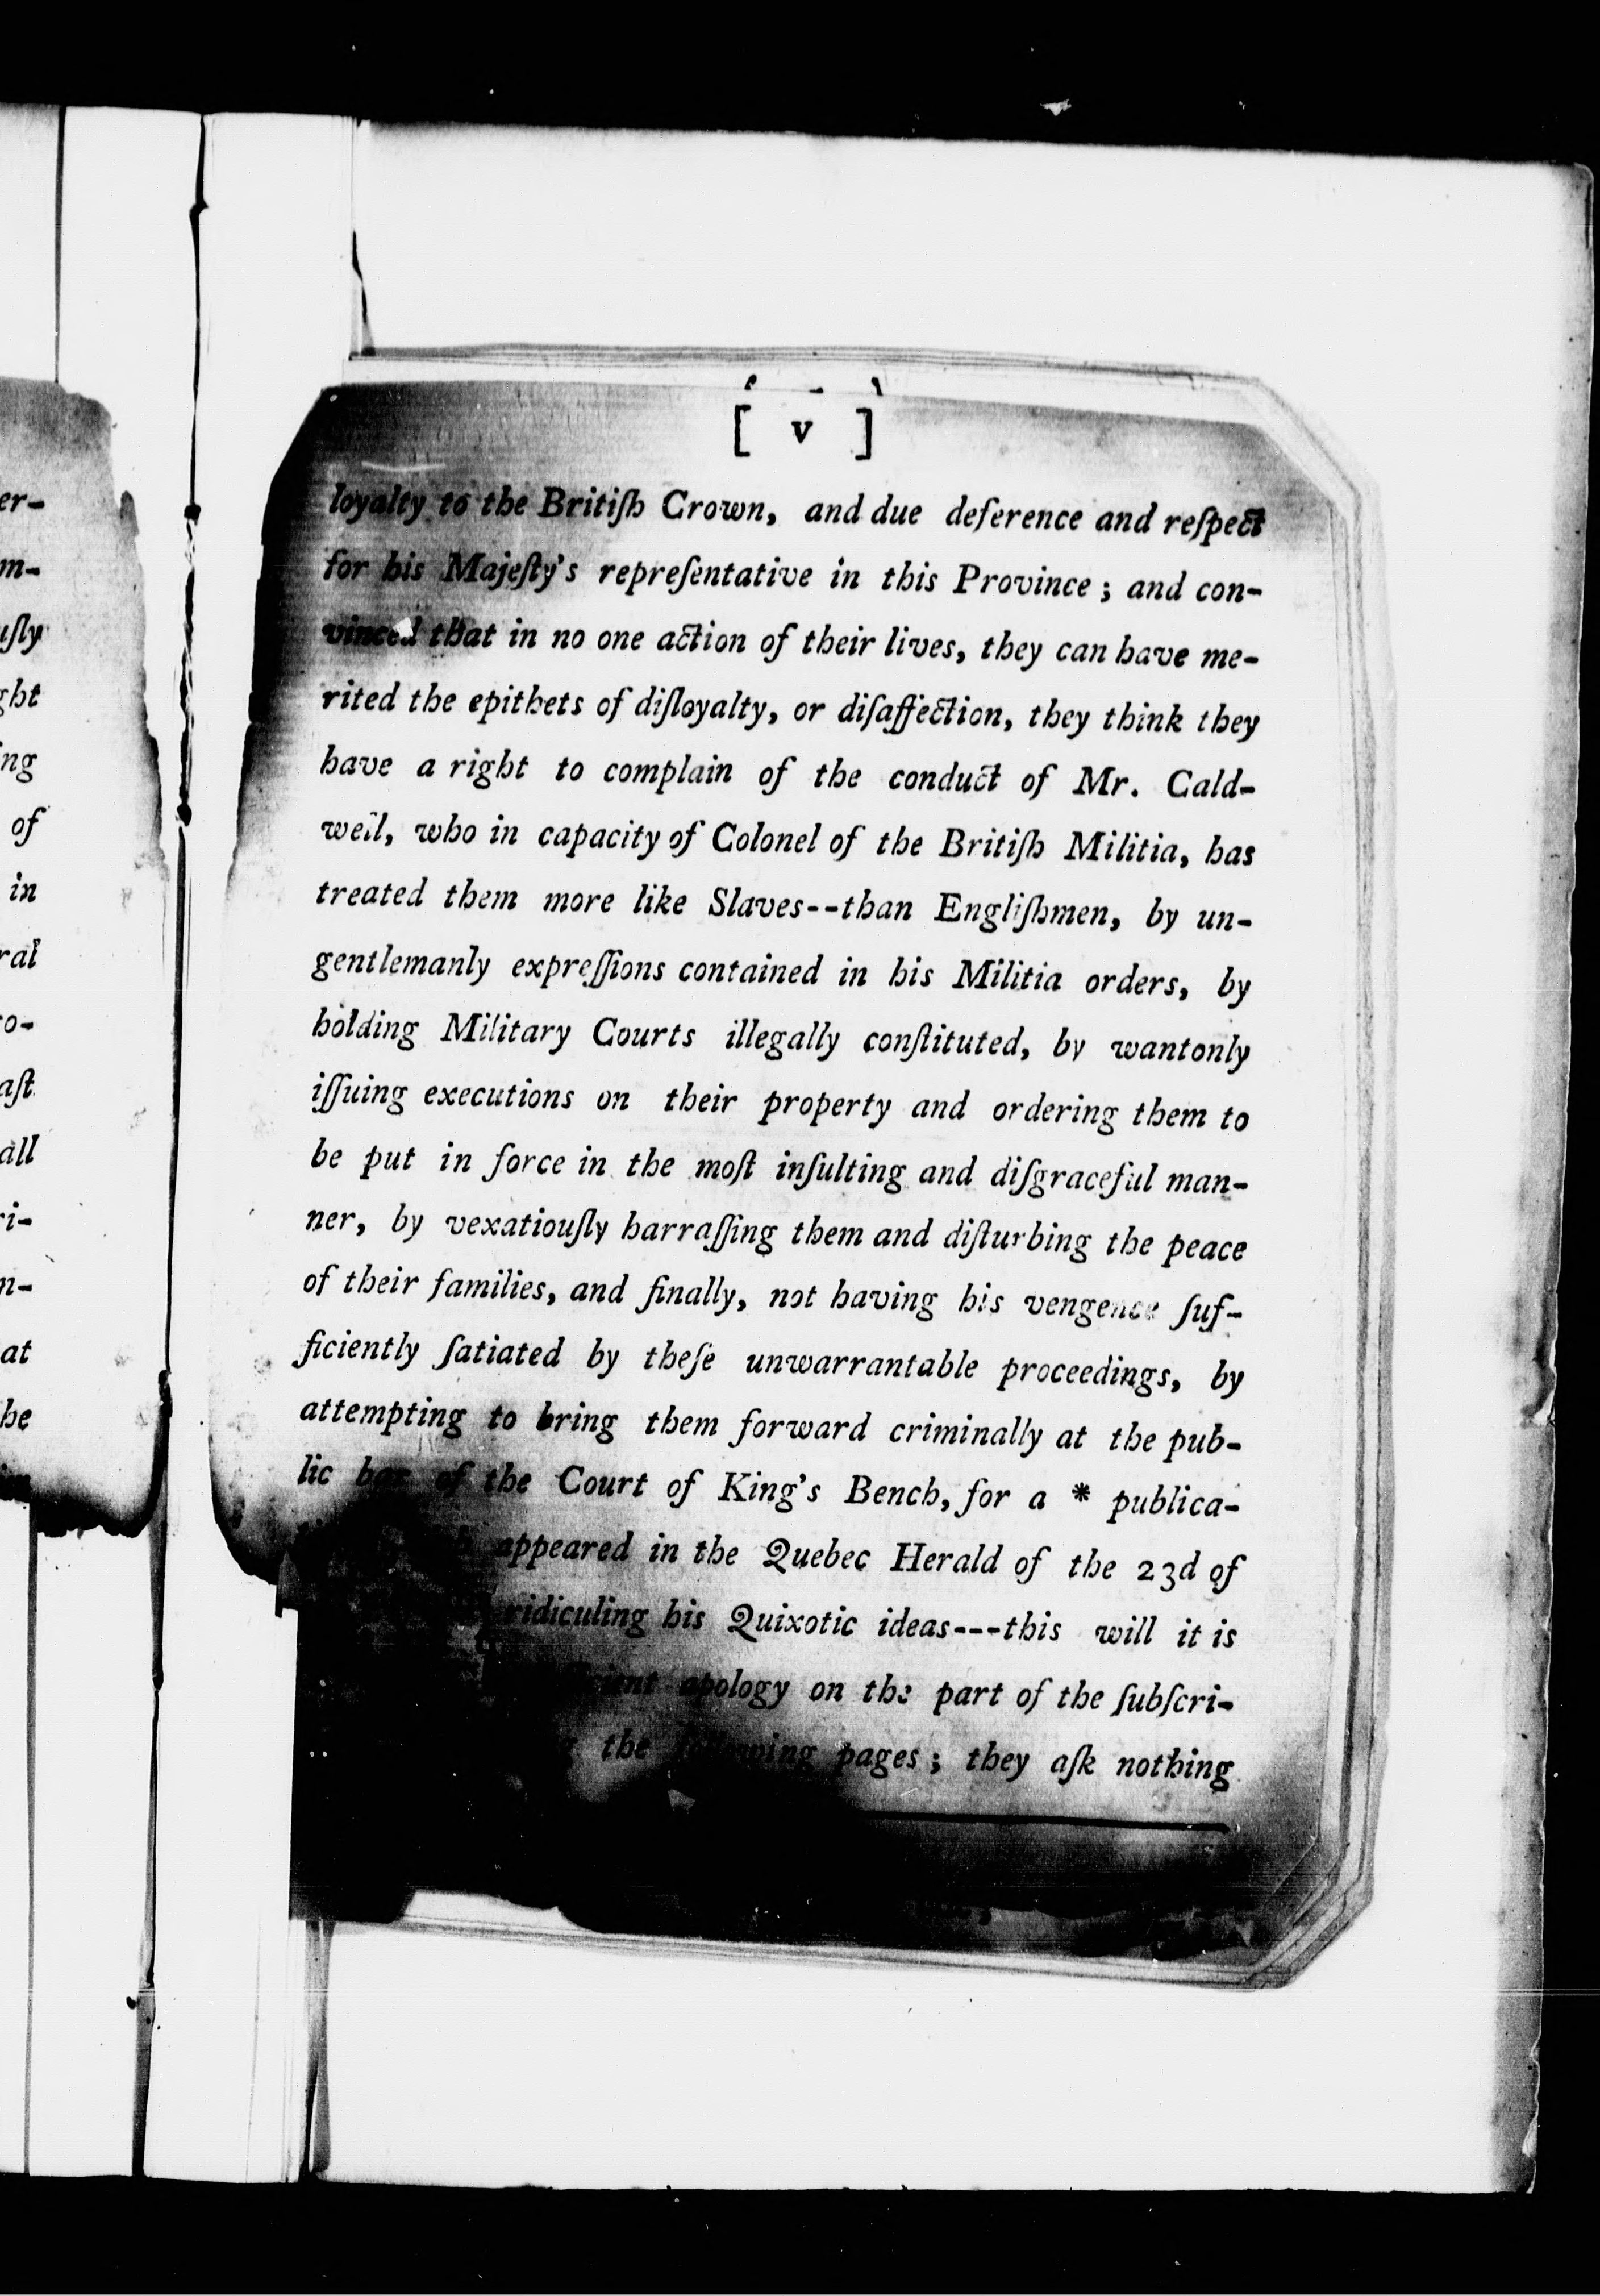 [ v ]
loyalty to the Britiſh Crown, and due deference and reſpect
for his Majeſty's repreſentative in this Province; and con-
vinced that in no one action of their lives, they can have me-
rited the epithets of diſloyalty, or diſaffection, they think they
have a right to complain of the conduct of Mr. Cald-
well, who in capacity of Colonel of the Britiſh Militia, has
treated them more like Slaves--than Engliſhmen, by un-
gentlemanly expreſſions contained in his Militia orders, by
holding Military Courts illegally conſtituted, by wantonly
iſſuing executions on their property and ordering them to
be put in force in the moſt inſulting and diſgraceful man-
ner, by vexatiouſly harraſſing them and diſturbing the peace
of their families, and finally, not having his vengence ſuf-
ficiently ſatiated by theſe unwarrantable proceedings, by
attempting to bring them forward criminally at the pub-
lic bar of the Court of King's Bench, for a * publica-
appeared in the Quebec Herald of the 23d of
ridiculing his Quixotic ideas---this will it is
apology on the part of the ſubſcri-
the following pages; they aſk nothing
er-
m-
uſly
ght
ing
of
in
ral
to-
aſt
all
ri-
n-
at
he